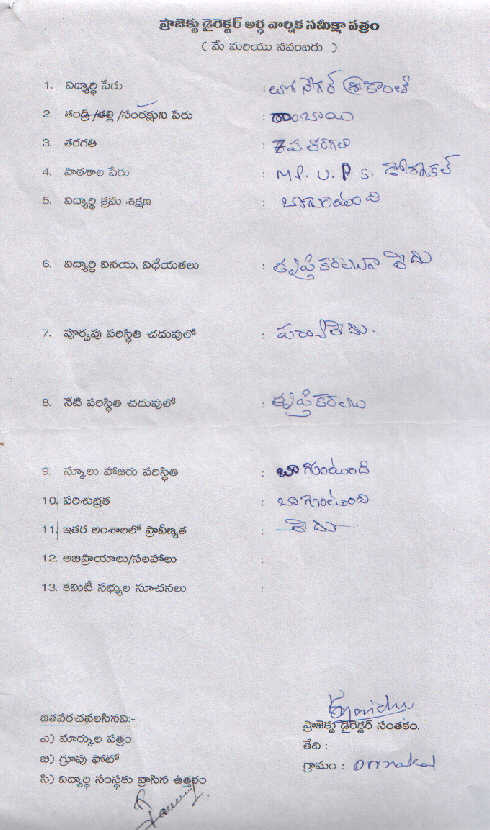 ప్రాజెక్టు డైరెక్టర్ అర్ధ వార్షిక సమీక్షా పత్రం
( మే మరియు నవంబరు )
1. విద్యార్థి పేరు : శ్రీకాంత్
2. తండ్రి/తల్లి/సంరక్షుని పేరు :
3. తరగతి : 7వ తరగతి
4. పాఠశాల పేరు : M.P. U. P. S.
5. విద్యార్థి క్రమ శిక్షణ : బాగాయుంది
6. విద్యార్థి వినయ, విధేయతలు : తృప్తికరముగా
7. పూర్వపు పరిస్థితి చదువులో : పర్వాలేదు.
8. నేటి పరిస్థితి చదువులో : తృప్తికరము
9. స్కూలు హాజరు పరిస్థితి : బాగుంటుంది
10. పరిశుభ్రత : బాగుంటుంది
11. ఇతర అంశాలలో ప్రావీణ్యత : లేదు
12. అభిప్రాయాలు/సలహాలు :
13. కమిటీ సభ్యుల సూచనలు :
జతపరచవలసినవి:-
ఎ) మార్కుల పత్రం
బి) గ్రూపు ఫోటో
సి) విద్యార్థి సంస్థకు వ్రాసిన ఉత్తరం
ప్రాజెక్టు డైరెక్టర్ సంతకం.
తేది :
గ్రామం :